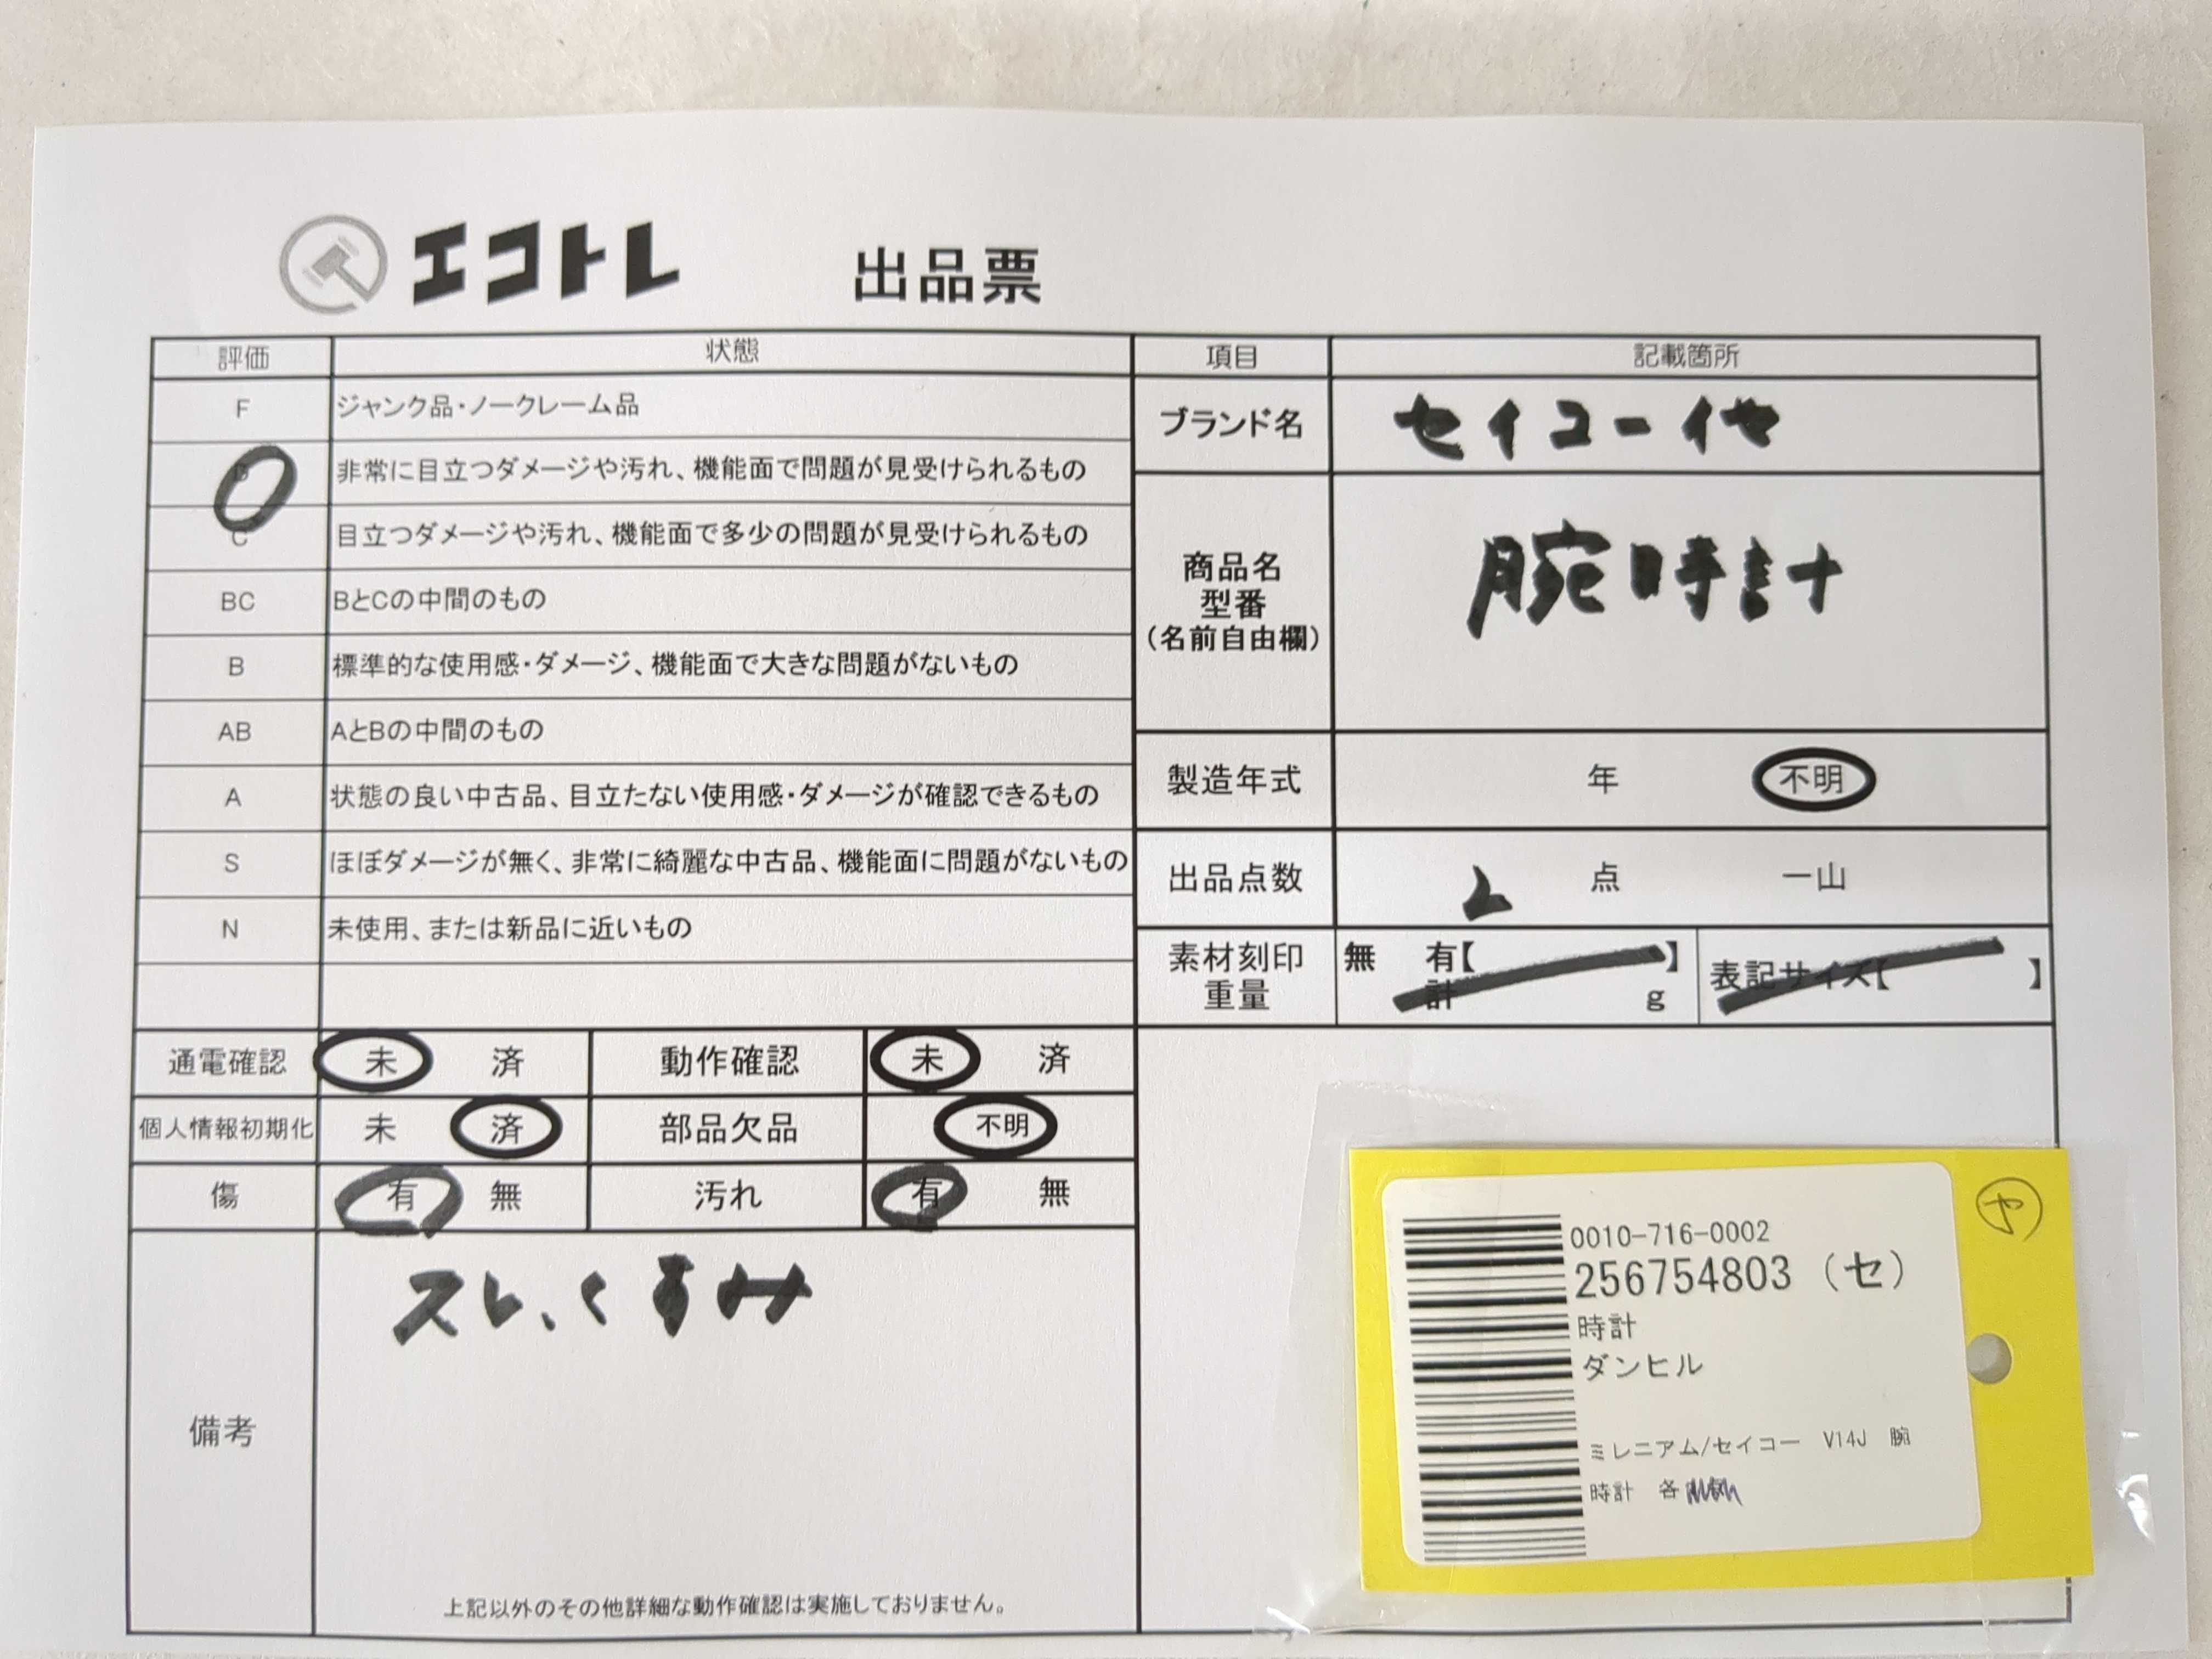 エコトレ 出品票
評価 状態 項目 記載箇所
F ジャンク品・ノークレーム品
D 非常に目立つダメージや汚れ、機能面で問題が見受けられるもの
C 目立つダメージや汚れ、機能面で多少の問題が見受けられるもの
BC BとCの中間のもの
B 標準的な使用感・ダメージ、機能面で大きな問題がないもの
AB AとBの中間のもの
A 状態の良い中古品、目立たない使用感・ダメージが確認できるもの
S ほぼダメージが無く、非常に綺麗な中古品、機能面に問題がないもの
N 未使用、または新品に近いもの
ブランド名 セイコー他
商品名
型番
（名前自由欄）
腕時計
製造年式 年 不明
出品点数 2 点 一山
素材刻印 無 有【 】 表記サイズ【 】
重量 計 g
通電確認 未 済 動作確認 未 済
個人情報初期化 未 済 部品欠品 不明
傷 有 無 汚れ 有 無
備考
スレ、くすみ
上記以外のその他詳細な動作確認は実施しておりません。
や
0010-716-0002
256754803 （セ）
時計
ダンヒル
ミレニアム/セイコー V14J 腕
時計 各